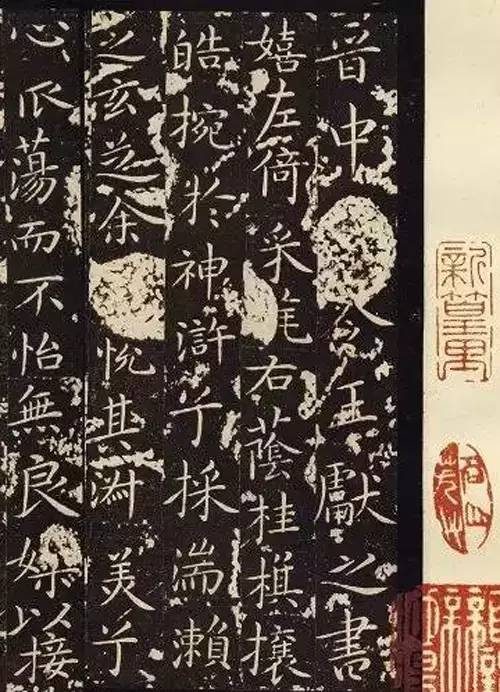 晋中令王獻之書
嬉左倚采旄右蔭桂旗攘
皓捥於神滸兮採湍瀨
之玄芝余悅其淑美兮
心蕩而不怡無良媒以接